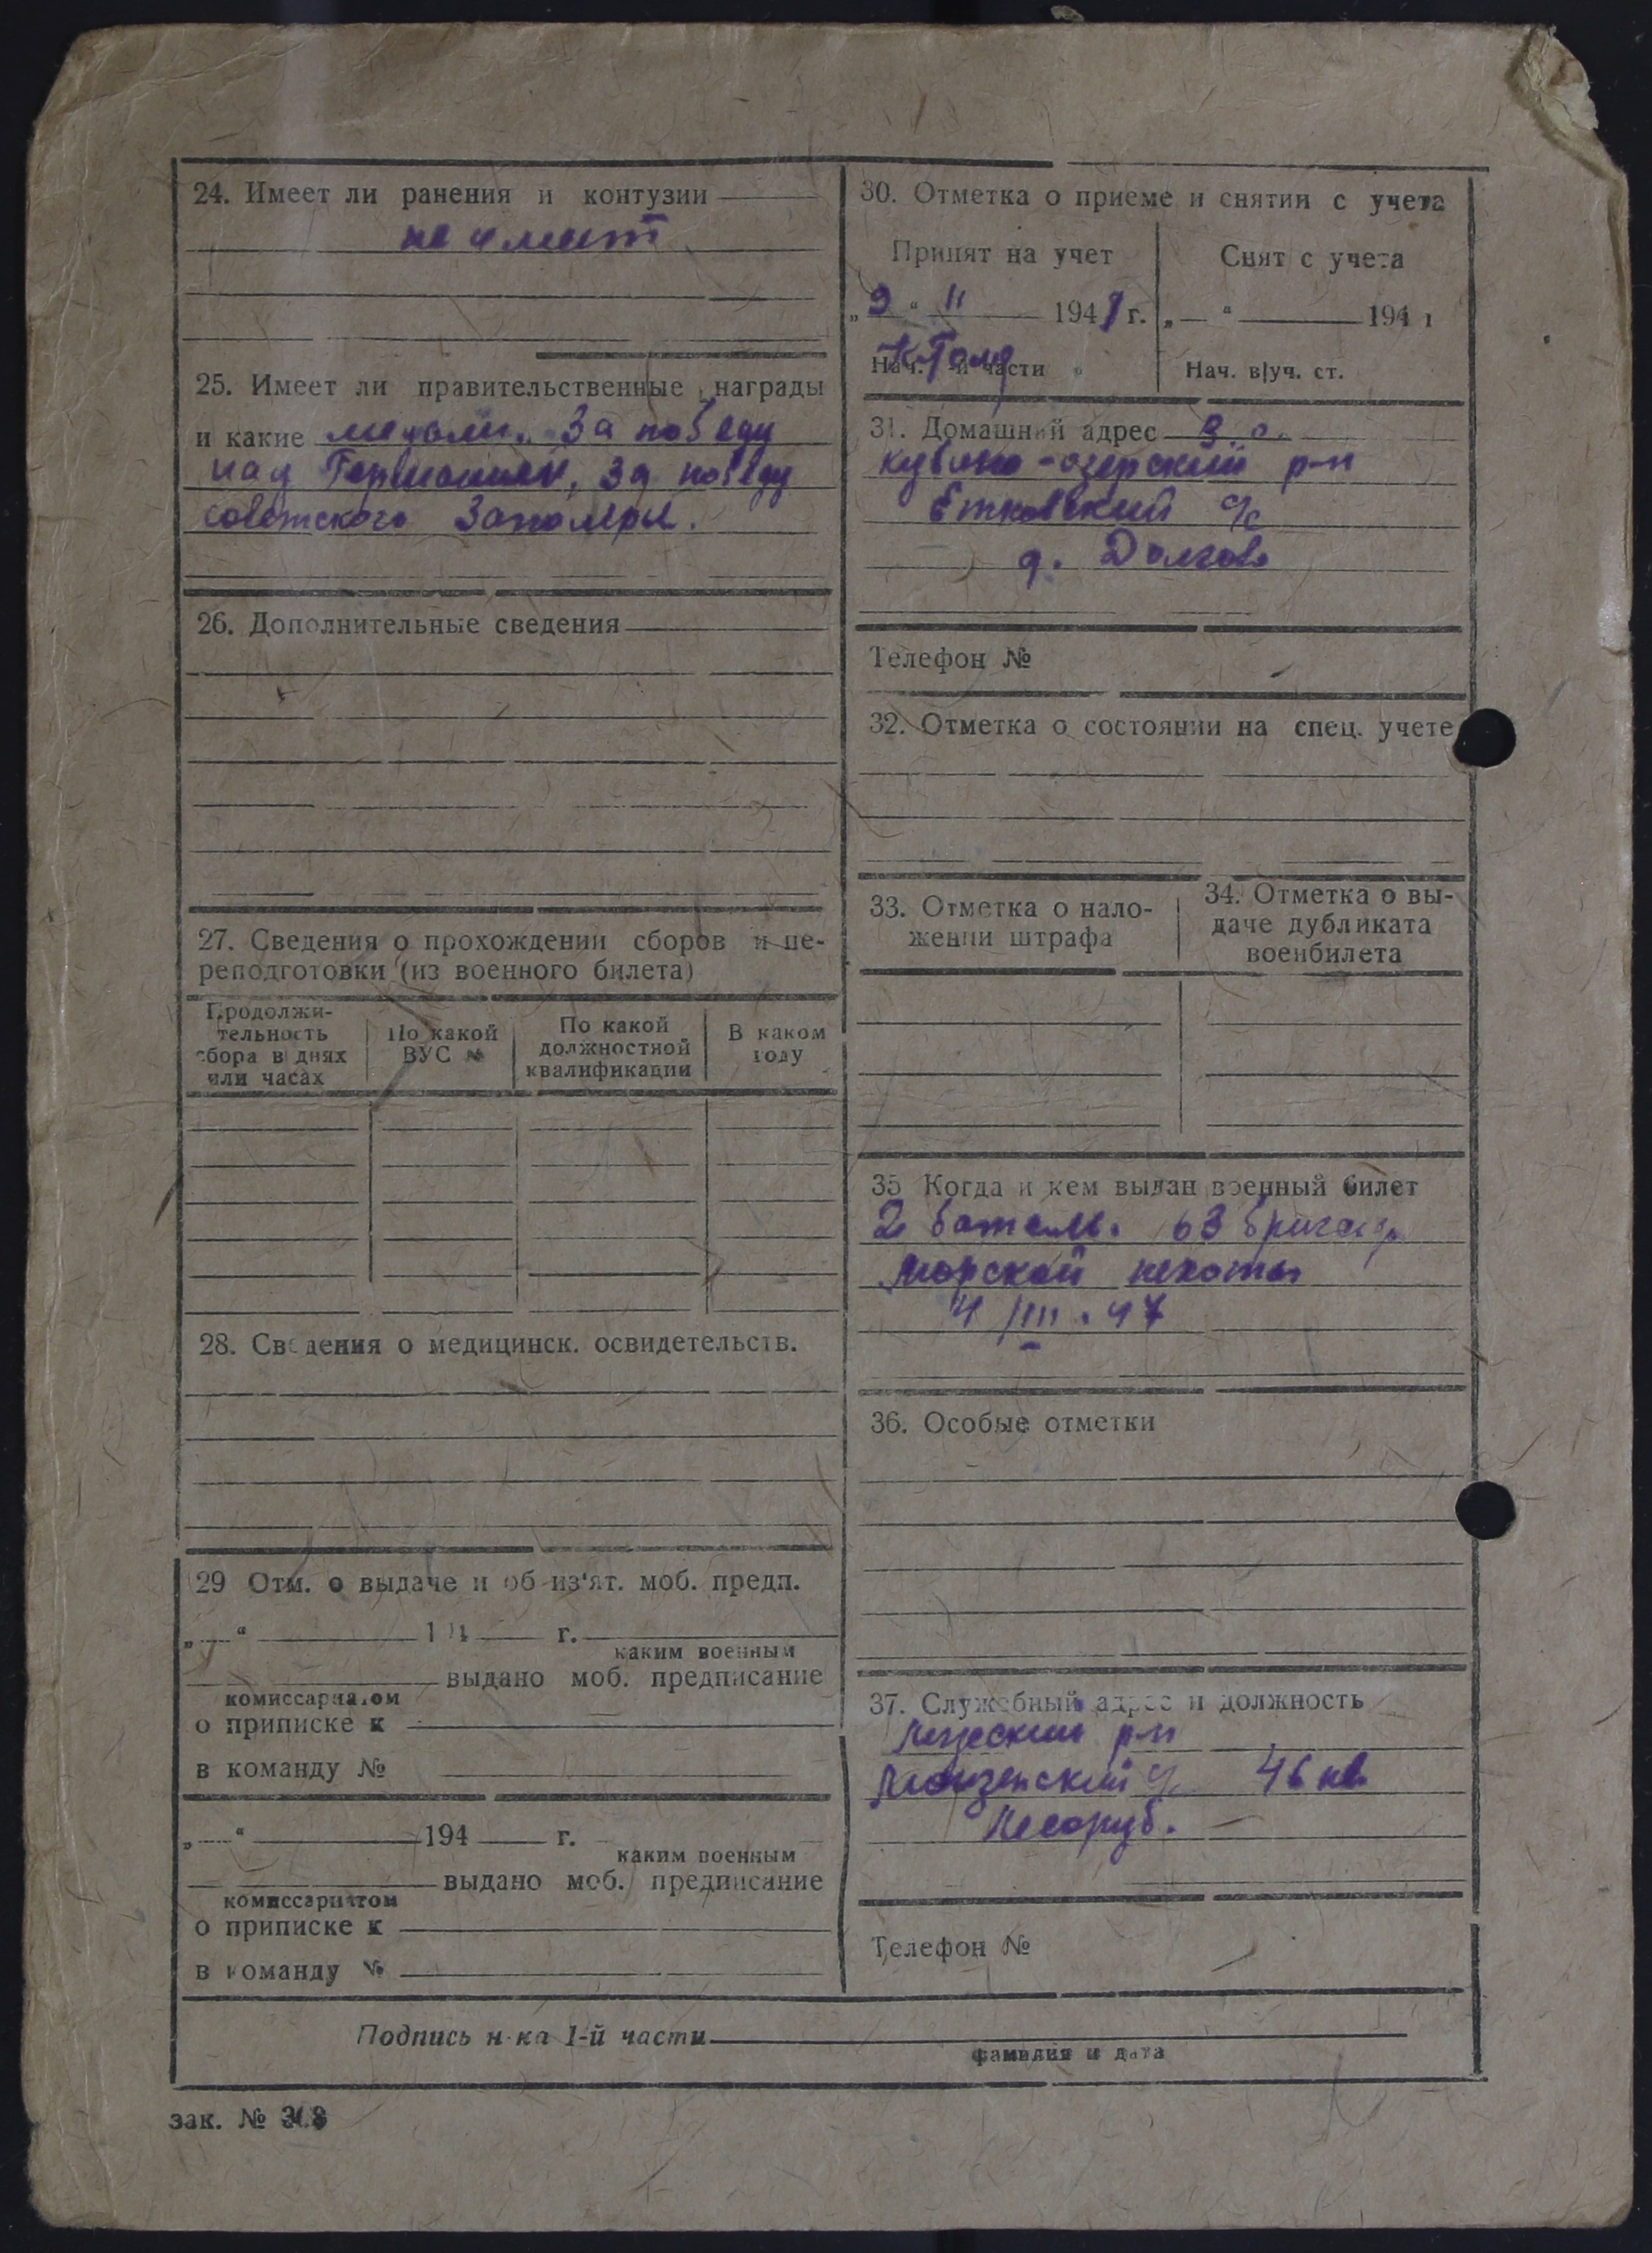 24. Имеет ли ранения и контузии
не имеет
25. Имеет ли правительственные награды
и какие медали. За победу
над Германией, За победу
советского Заполяры.
26. Дополнительные сведения
27. Сведения о прохождении сборов и пе-
реподготовки (из военного билета)
Продолжи-
тельность
сбора в днях
или часах
По какой
ВУС №
По какой
должностной
квалификации
В каком
году
28. Сведения о медицинск. освидетельств.
29 Отм. о выдаче и об из'ят. моб. предп.
„ “ 194 г.
каким военным
выдано моб. предписание
комиссариатом
о приписке к
в команду №
„ “ 194 г.
каким военным
выдано моб. предписание
комиссариатом
о приписке к
в команду №
30. Отметка о приеме и снятии с учета
Принят на учет
„9 “ 11 194 г.
Нач. и части
Снят с учета
„ “ 194 г
Нач. в|уч. ст.
31. Домашний адрес В. о.
Кубено-озерский р-н
Етковский с/с
д. Долгово
Телефон №
32. Отметка о состоянии на спец. учете
33. Отметка о нало-
жении штрафа
34. Отметка о вы-
даче дубликата
военбилета
35 Когда и кем выдан военный билет
2 баталь. 63 бригад.
морской пехоты
4/III.47
36. Особые отметки
37. Служебный адрес и должность
р-н
46 кв.
Лесоруб.
Телефон №
Подпись н-ка 1-й части
фамилия и дата
зак. № 308